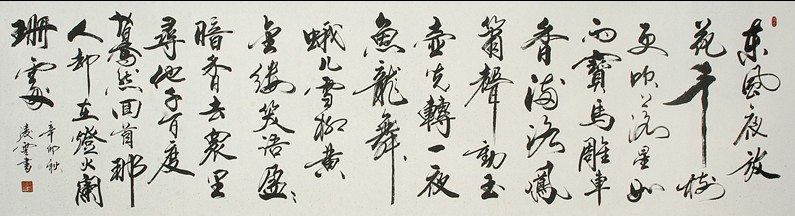 東風夜放
花千樹
更吹落星如
雨寶馬雕車
香滿路鳳
簫聲動玉
壺光轉一夜
魚龍舞
蛾儿雪柳黃
金縷笑語盈〻
暗香去衆里
尋他千百度
驀然回首那
人却在燈火闌
珊處
辛卯秋
凌雲書